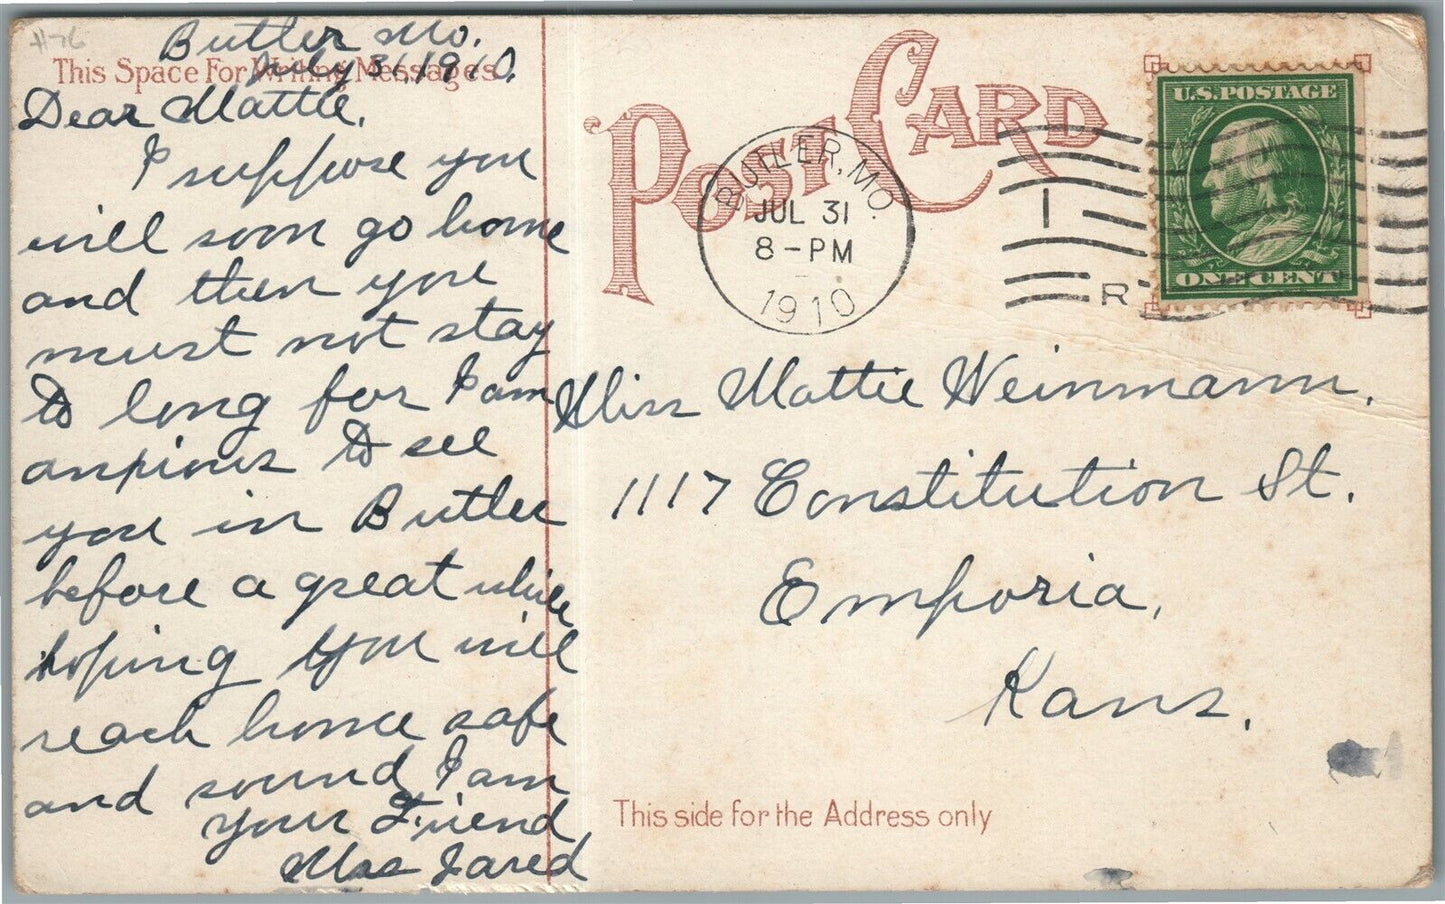 #76
Butler Mo.
This Space For Writing Messages
July 31, 1910.
Dear Mattie,
I suppose you
will soon go home
and then you
must not stay
to long for I am
anxious to see
you in Butler
before a great while
hoping you will
reach home safe
and sound I am
your Friend
Mrs Jared
POST CARD
BUTLER, MO.
JUL 31
8-PM
1910
1
R
U.S. POSTAGE
ONE CENT
Miss Mattie Weinmann,
1117 Constitution St.
Emporia,
Kans.
This side for the Address only